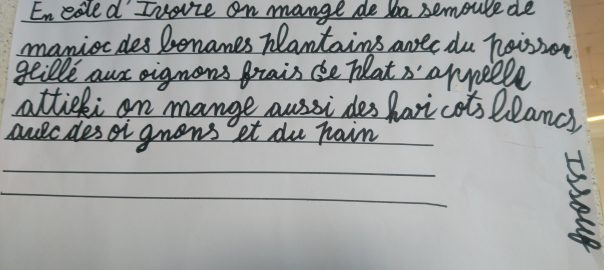 En côte d'Ivoire on mange de la semoule de
manioc des bonanes plantains avec du poisson
grillé aux oignons frais Ce plat s'appelle
attieki on mange aussi des hari cots blancs
avec des oi gnons et du pain
Issouf